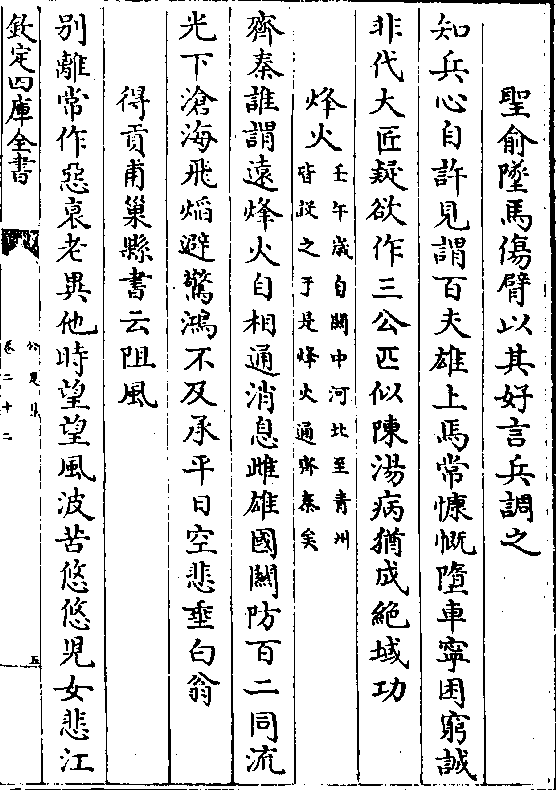 聖俞墜馬傷臂以其好言兵調之
知兵心自許見謂百夫雄上馬常慷慨隨車寧困窮誠
非代大匠疑欲作三公匹似陳湯病猶成絶域功
烽火
壬午嵗自關中河北至青州
皆設之于是烽火通齊秦矣
齊秦誰謂遠烽火自相通消息雌雄國關防百二同流
光下滄海飛熖避驚鴻不及承平日空悲垂白翁
得貢甫巢縣書云阻風
别離常作惡衰老異他時望望風波苦悠悠兒女悲江
欽定四庫全書
公是集
卷二十二
五